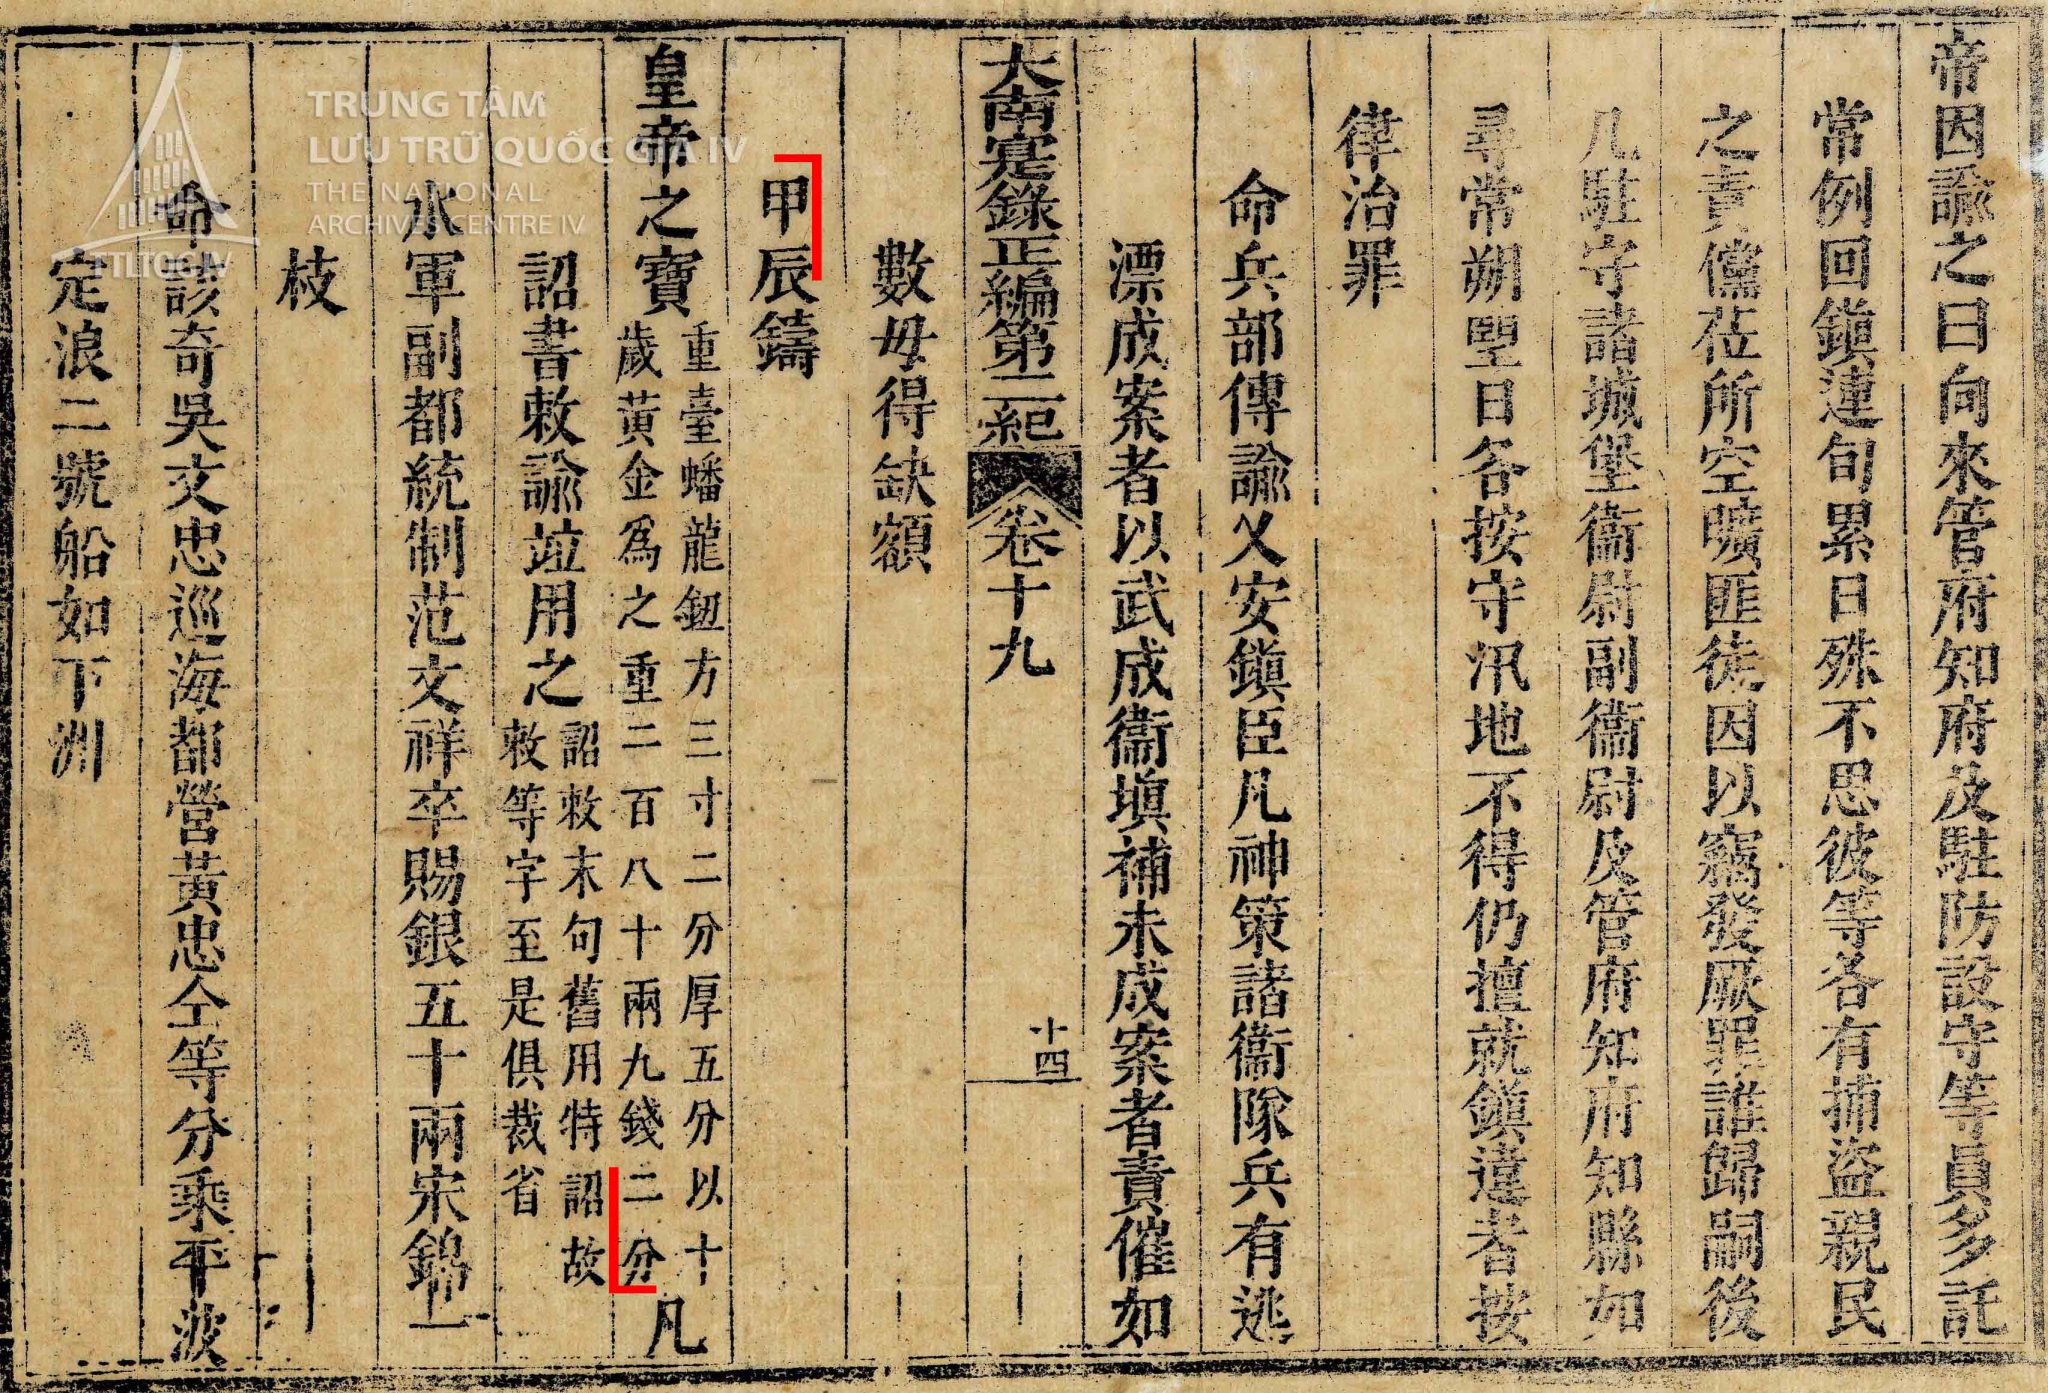 帝因諭之曰向來管府知府及駐防設守等員多託
常例回鎮連旬累日殊不思彼等各有捕盜親民
之責儻莅所空曠匪徒因以竊發厥罪誰歸嗣後
凡駐守諸城堡衞尉副衞尉及管府知府知縣如
尋常朔朢日各按守汛地不得仍擅就鎮違者按
律治罪
命兵部傳諭乂安鎮臣凡神策諸衞隊兵有逃
漂成案者以武成衞塡補未成案者責催如
大南寔錄正編第二紀 卷十九
十四
數毋得缺額
甲辰鑄
皇帝之寶
重臺蟠龍鈕方三寸二分厚五分以十
歲黃金爲之重二百八十兩九錢二分
凡
詔書敕諭竝用之
詔敕末句舊用特詔故
敕等字至是俱裁省
水軍副都統制范文祥卒賜銀五十兩宋錦一
枝
命該奇吳文忠巡海都營黃忠仝等分乘平波
定浪二號船如下洲
TRUNG TÂM
LƯU TRỮ QUỐC GIA IV
THE NATIONAL
ARCHIVES CENTRE IV
TTLTQG IV